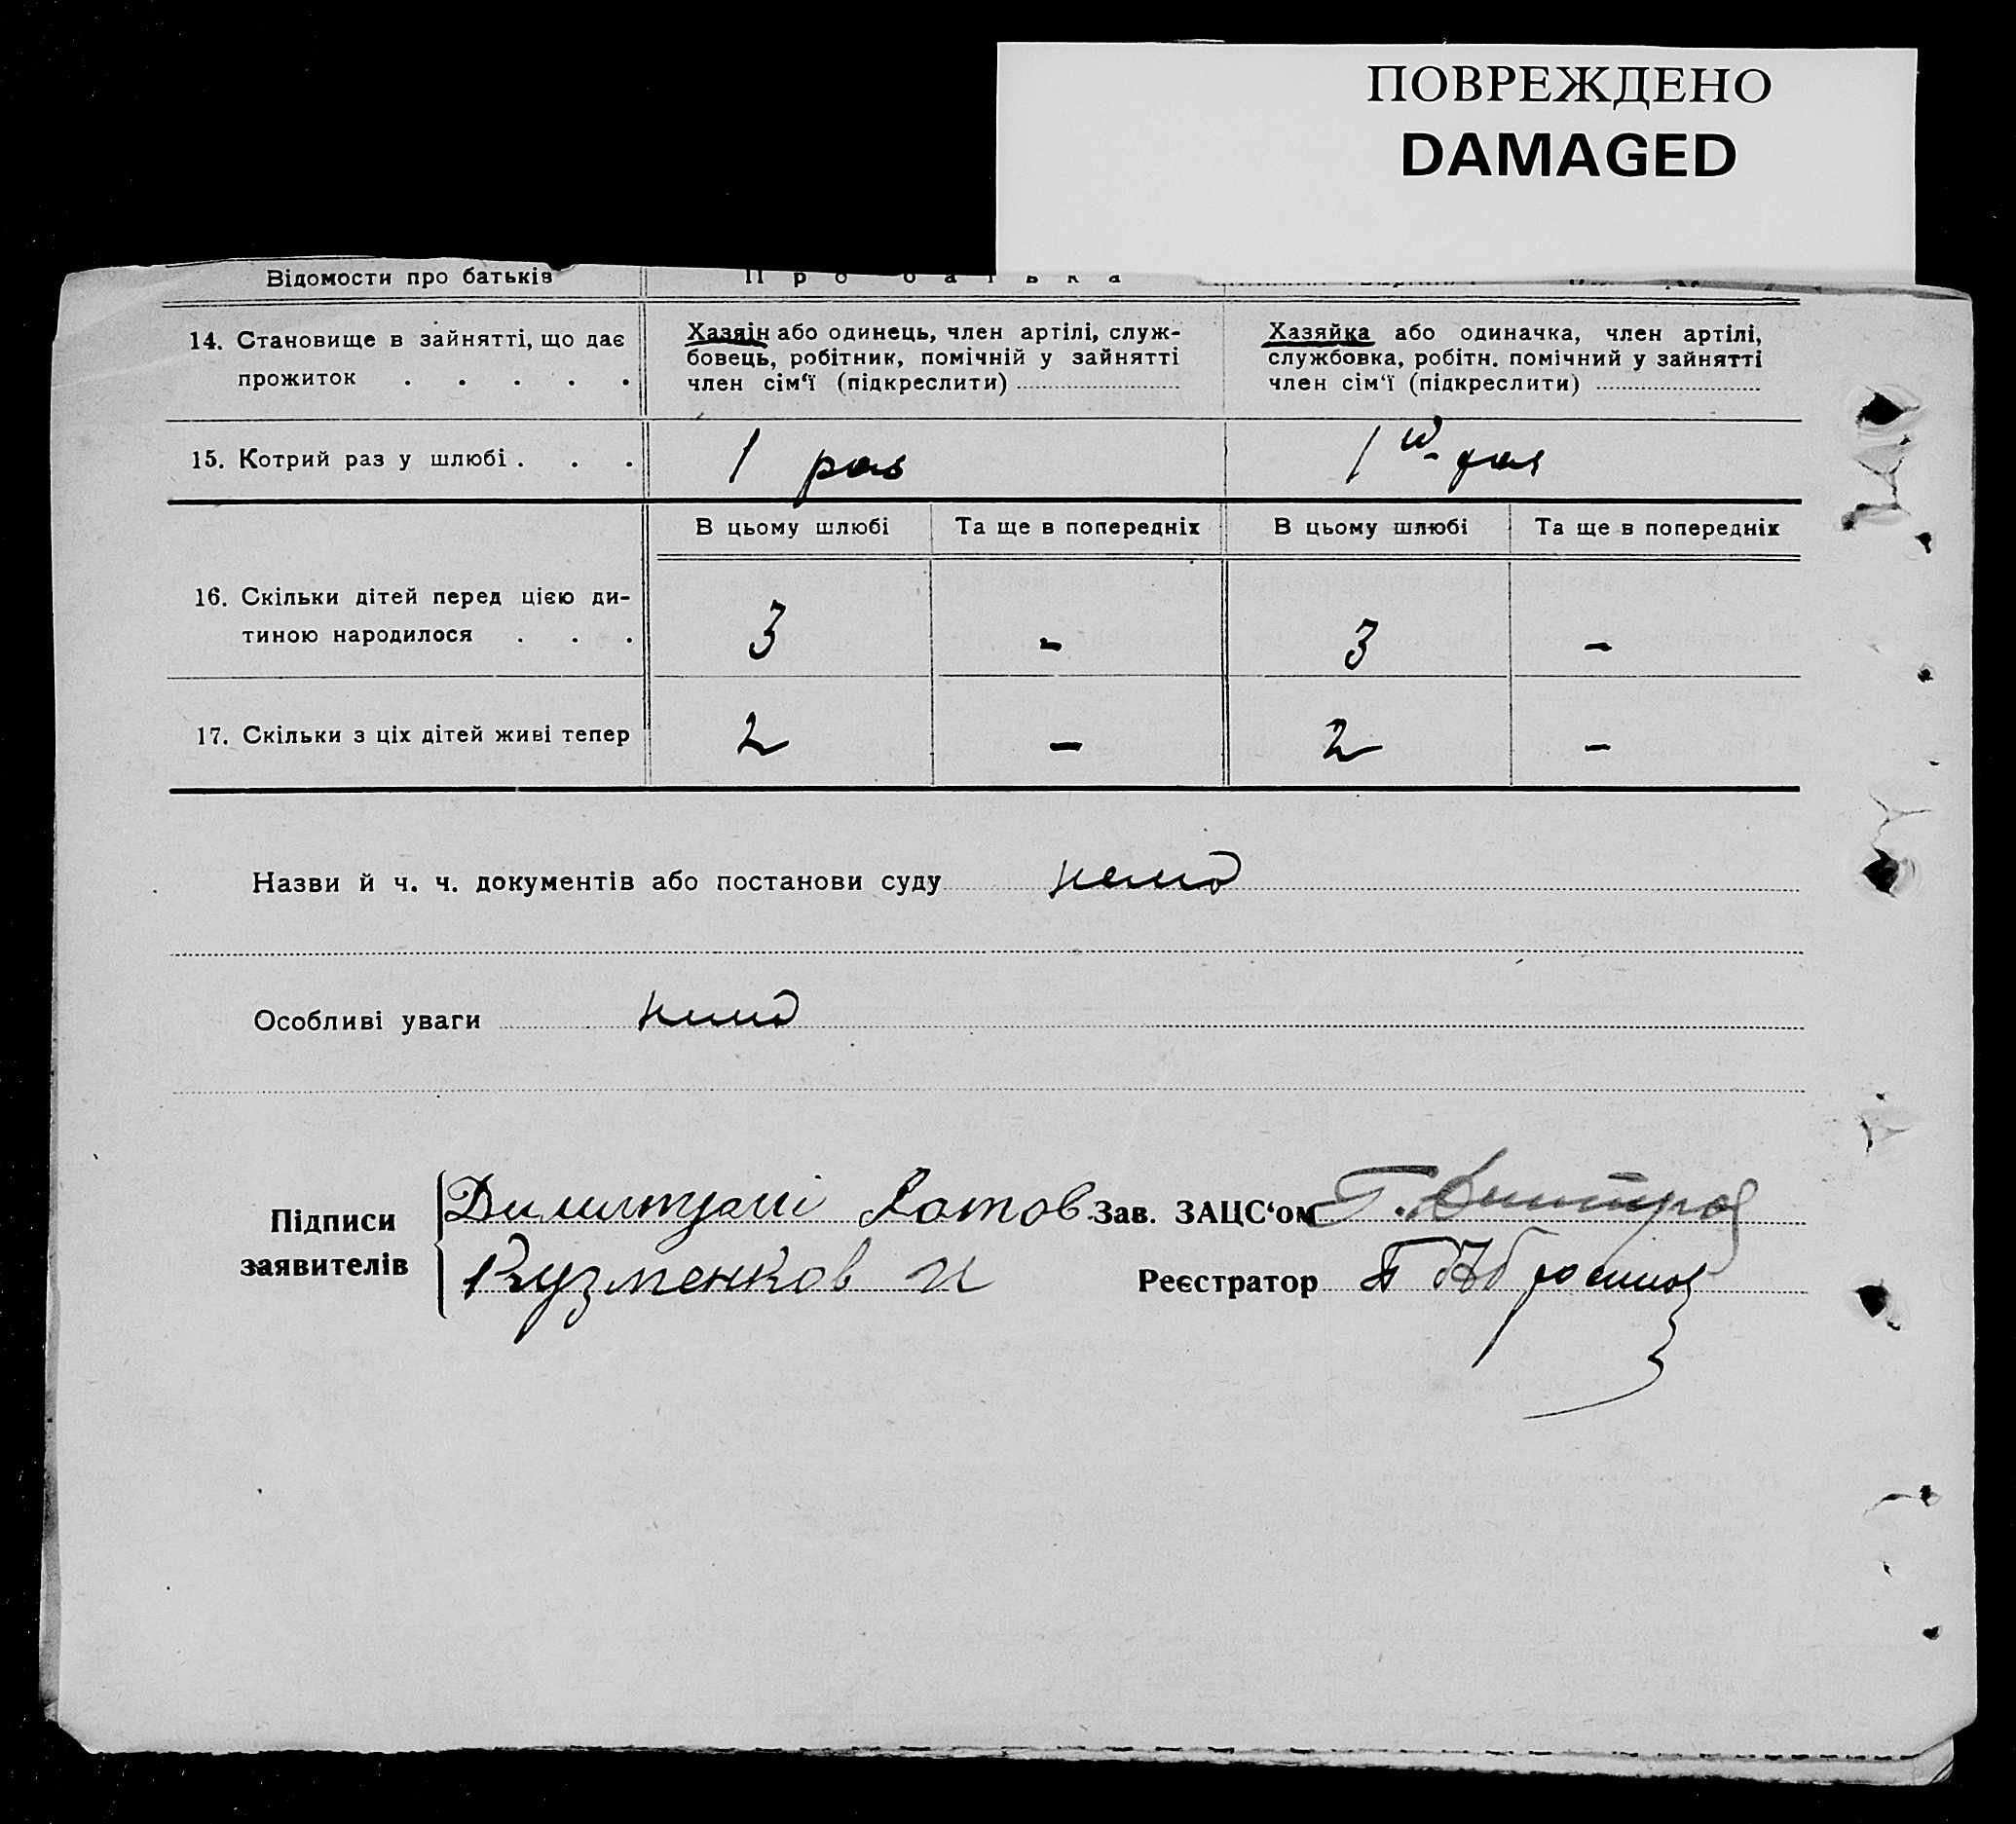 ПОВРЕЖДЕНО
DAMAGED
Відомости про батьків Про батька
14. Становище в зайнятті, що дає прожиток . . . . .
Хазяїн або одинець, член артілі, служ-
бовець, робітник, помічній у зайнятті
член сім‘ї (підкреслити)
Хазяйка або одиначка, член артілі,
службовка, робітн. помічний у зайнятті
член сім‘ї (підкреслити)
15. Котрий раз у шлюбі . . . 1 раз 1й раз
В цьому шлюбі Та ще в попередніх В цьому шлюбі Та ще в попередніх
16. Скільки дітей перед цією ди-
тиною народилося . . . 3 - 3 -
17. Скільки з ціх дітей живі тепер 2 - 2 -
Назви й ч. ч. документів або постанови суду нема
Особливі уваги нема
Підписи заявителів
Зав. ЗАЦС‘ом Г. Дмитров
Кузменков И
Реєстратор